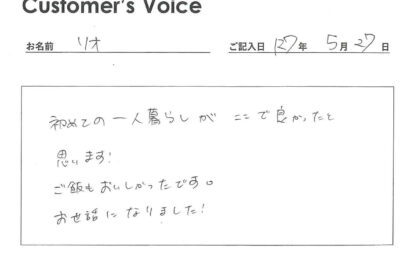 Customer's Voice
お名前 リオ ご記入日 H27年 5月27日
初めての一人暮らしが ここで良かったと
思います!
ご飯もおいしかったです。
お世話になりました!